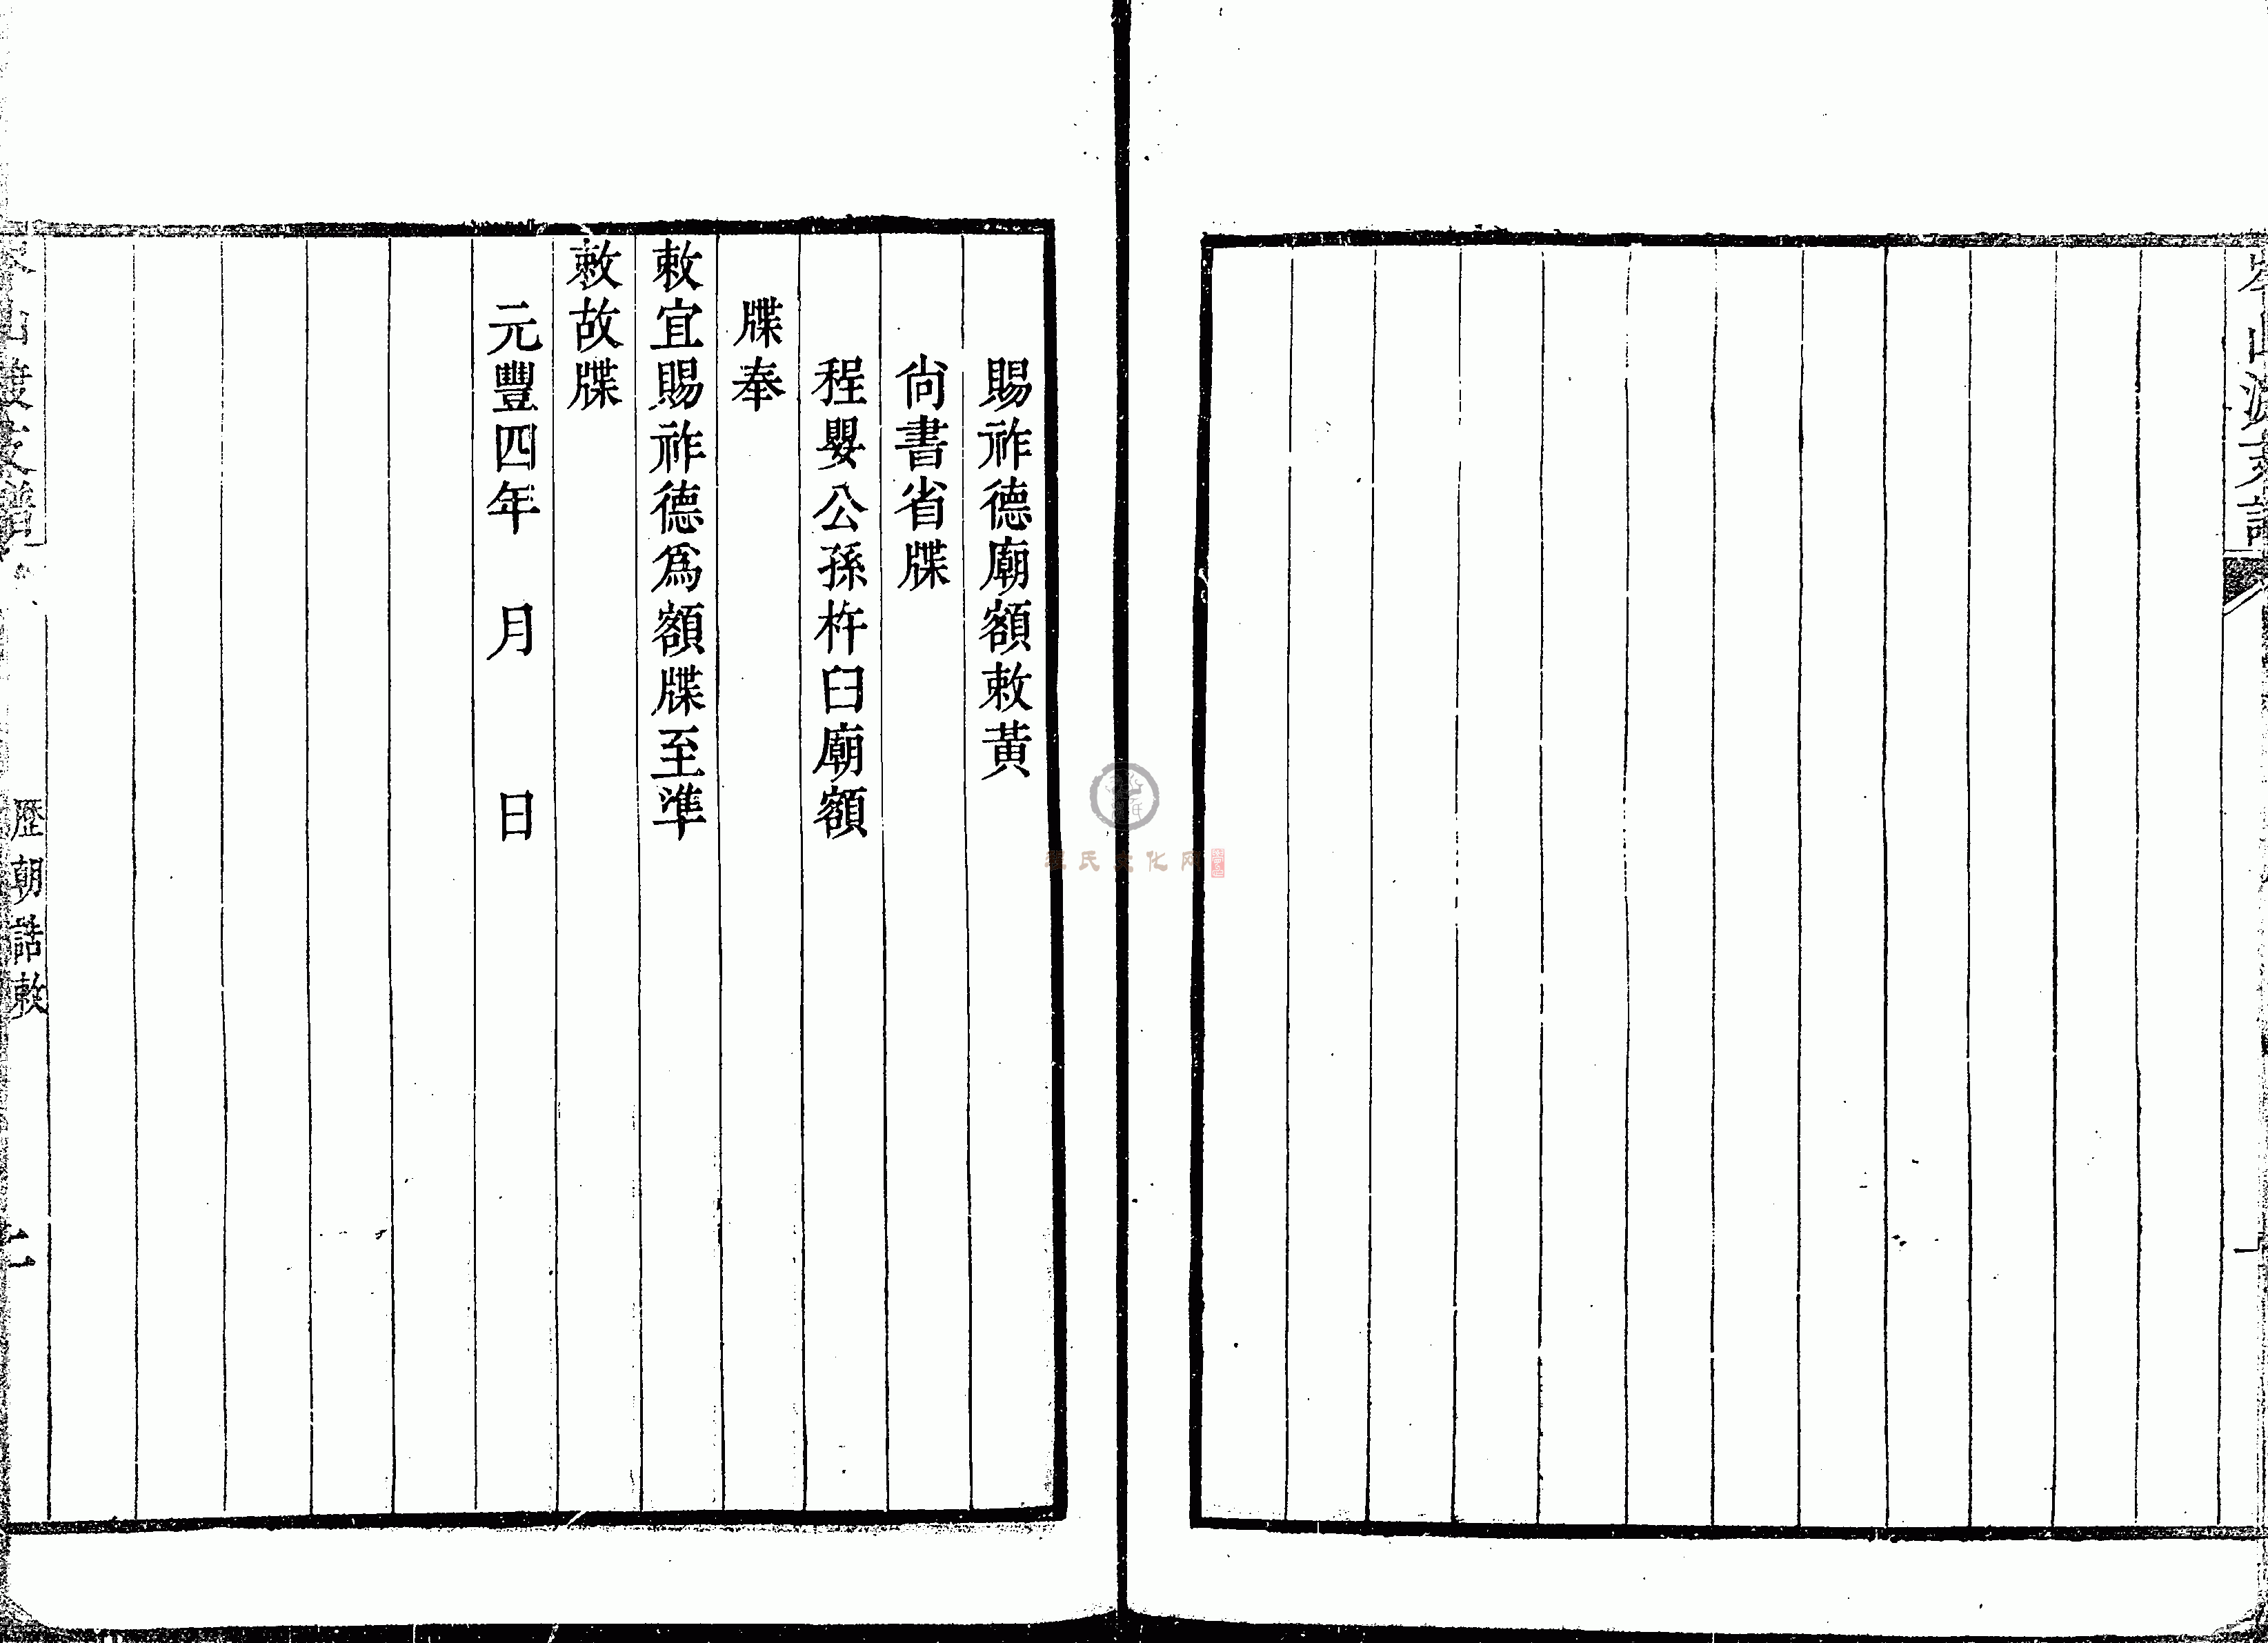 賜祚德廟額敕黃
尚書省牒
程嬰公孫杵臼廟額
牒奉
敕宜賜祚德為額牒至準
敕故牒
元豐四年　月　日
歷朝誥敕
二
一